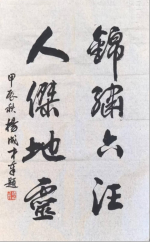 錦繡六汪
人傑地靈
甲辰秋楊成才年題